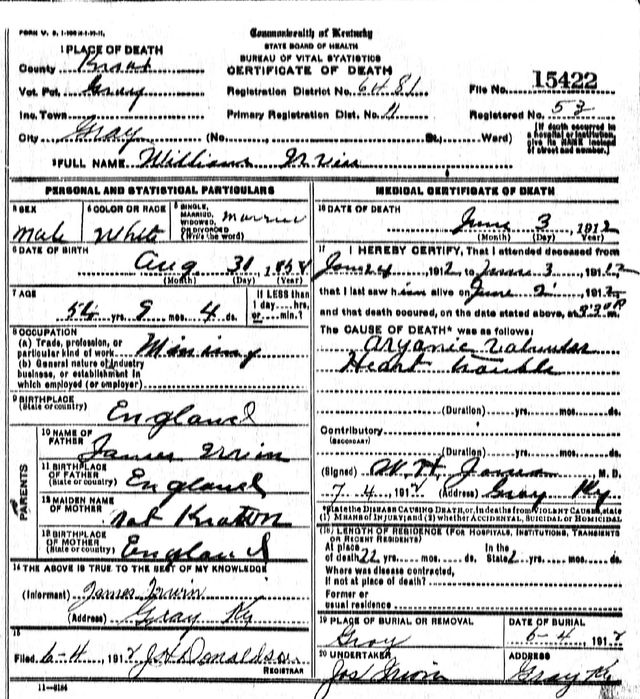 Commonwealth of Kentucky
STATE BOARD OF HEALTH
BUREAU OF VITAL STATISTICS
CERTIFICATE OF DEATH
1 PLACE OF DEATH
County Knox
Vot. Pct. Gray
Inc. Town
City Gray
Registration District No. 6481
Primary Registration Dist. No. 11
File No. 15422
Registered No. 52
(No. St., Ward)
(If death occurred in a hospital or institution, give its NAME instead of street and number.)
2 FULL NAME William Irvin
PERSONAL AND STATISTICAL PARTICULARS
3 SEX Male
4 COLOR OR RACE White
5 SINGLE, MARRIED, WIDOWED, OR DIVORCED (Write the word) Married
6 DATE OF BIRTH
Aug 31, 1858
(Month) (Day) (Year)
7 AGE
54 yrs. 9 mos. 4 ds.
If LESS than 1 day....hrs. or....min.?
8 OCCUPATION
(a) Trade, profession, or particular kind of work Mining
(b) General nature of industry business, or establishment in which employed (or employer)
9 BIRTHPLACE (State or country) England
PARENTS
10 NAME OF FATHER James Irvin
11 BIRTHPLACE OF FATHER (State or country) England
12 MAIDEN NAME OF MOTHER Not Known
13 BIRTHPLACE OF MOTHER (State or country) England
14 THE ABOVE IS TRUE TO THE BEST OF MY KNOWLEDGE
(Informant) James Irwin
(Address) Gray Ky
15
Filed 6-4, 1912 J H Donaldson
REGISTRAR
11-3184
MEDICAL CERTIFICATE OF DEATH
16 DATE OF DEATH
June 3, 1912
(Month) (Day) (Year)
17 I HEREBY CERTIFY, That I attended deceased from
1912 to June 3, 1912
that I last saw him alive on June 2, 1912
and that death occured, on the date stated above, at
The CAUSE OF DEATH* was as follows:
Organic Valvular
Heart trouble
(Duration) yrs. mos. ds.
Contributory
(SECONDARY)
(Duration) yrs. mos. ds.
(Signed) W. H. M. D.
7-4, 1912 (Address) Gray Ky
*State the DISEASE CAUSING DEATH, or, in deaths from VIOLENT CAUSES, state (1) MEANS OF INJURY; and (2) whether ACCIDENTAL, SUICIDAL or HOMICIDAL
(18) LENGTH OF RESIDENCE (FOR HOSPITALS, INSTITUTIONS, TRANSIENTS OR RECENT RESIDENTS)
At place of death 22 yrs. mos. ds. In the State yrs. mos. ds.
Where was disease contracted, if not at place of death?
Former or usual residence
19 PLACE OF BURIAL OR REMOVAL
Gray
DATE OF BURIAL
6-4, 1912
20 UNDERTAKER
Jos Irwin
ADDRESS
Gray Ky